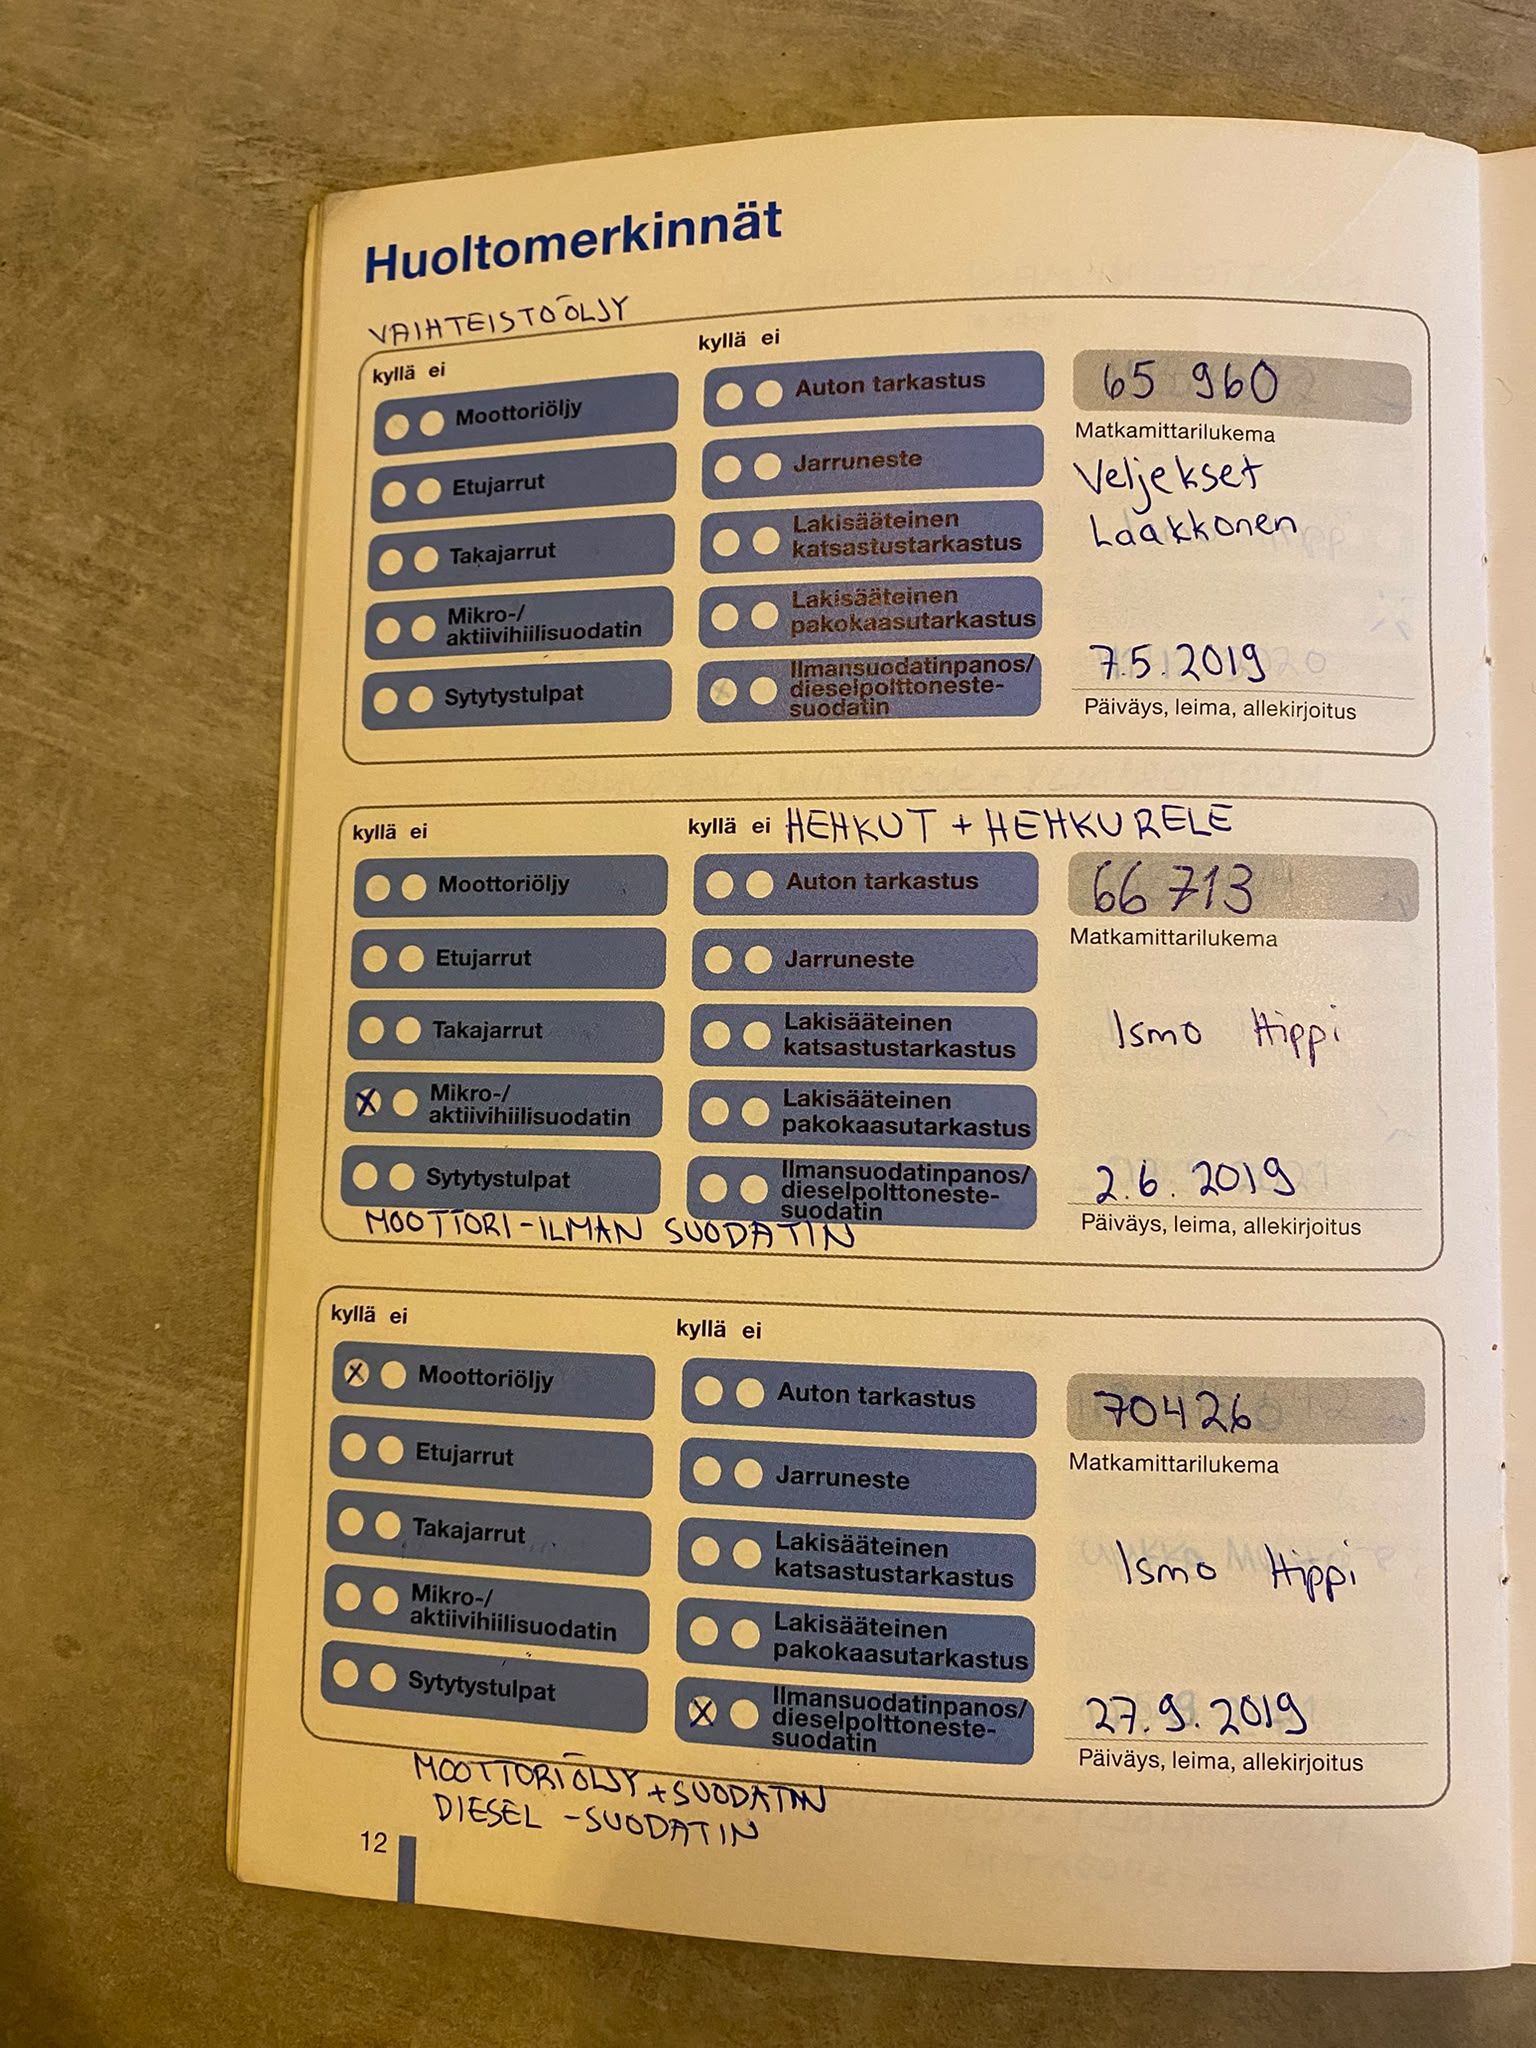 Huoltomerkinnät
VAIHTEISTOÖLJY
kyllä ei
Moottoriöljy
Etujarrut
Takajarrut
Mikro-/
aktiivihiilisuodatin
Sytytystulpat
kyllä ei
Auton tarkastus
Jarruneste
Lakisääteinen
katsastustarkastus
Lakisääteinen
pakokaasutarkastus
Ilmansuodatinpanos/
dieselpolttoneste-
suodatin
65 960
Matkamittarilukema
Veljekset
Laakkonen
7.5.2019
Päiväys, leima, allekirjoitus
kyllä ei
Moottoriöljy
Etujarrut
Takajarrut
X Mikro-/
aktiivihiilisuodatin
Sytytystulpat
MOOTTORI-ILMAN SUODATIN
kyllä ei HEHKUT + HEHKURELE
Auton tarkastus
Jarruneste
Lakisääteinen
katsastustarkastus
Lakisääteinen
pakokaasutarkastus
Ilmansuodatinpanos/
dieselpolttoneste-
suodatin
66 713
Matkamittarilukema
Ismo Hippi
2.6.2019
Päiväys, leima, allekirjoitus
kyllä ei
X Moottoriöljy
Etujarrut
Takajarrut
Mikro-/
aktiivihiilisuodatin
Sytytystulpat
kyllä ei
Auton tarkastus
Jarruneste
Lakisääteinen
katsastustarkastus
Lakisääteinen
pakokaasutarkastus
X Ilmansuodatinpanos/
dieselpolttoneste-
suodatin
70426
Matkamittarilukema
Ismo Hippi
27.9.2019
Päiväys, leima, allekirjoitus
MOOTTORIÖLJY + SUODATIN
DIESEL -SUODATIN
12